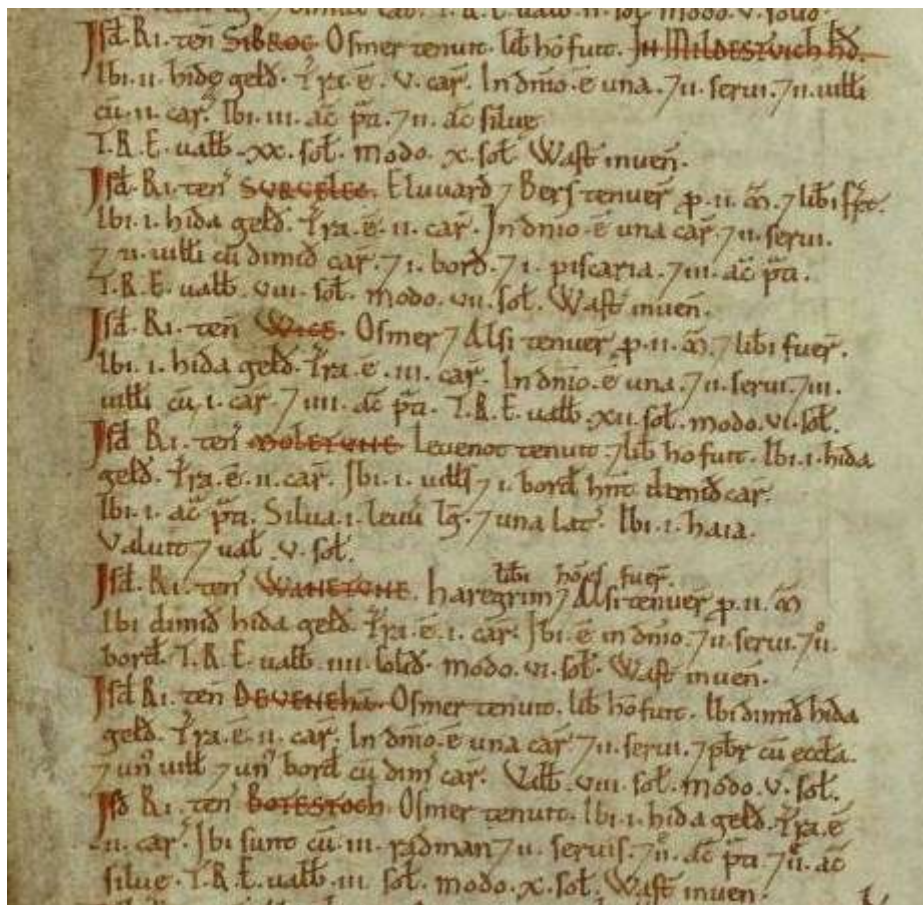 Isd. Ri. ten̄ SIBROC. Osmer tenuit. lib̄ hō fuit. IN MILDESTVICH HD̄.
Ibi. ii. hidę geld̄. Tr̄a. ē. v. car̄. In dn̄io. ē una. ⁊ ii. serui. ⁊ ii. uilłi
cū. ii. car̄. Ibi. iii. ac̄ p̄ti. ⁊ ii. ac̄ siluę
T.R.E. ualb̄. xx. soł. modo. x. soł. Wast̄ inuen̄.
Isd. Ri. ten̄ SVRVELEC. Eluuard ⁊ Bers tenuer̄ p. ii. m̄. ⁊ lib̄i
Ibi. i. hida geld̄. Tr̄a. ē. ii. car̄. In dn̄io. ē una car̄. ⁊ ii. serui.
⁊ ii. uilłi cū dimid̄ car̄. ⁊ i. bord̄. ⁊ i. piscaria. ⁊ iii. ac̄ p̄ti.
T.R.E. ualb̄. viii. soł. modo. vii. soł. Wast̄ inuen̄.
Isd. Ri. ten̄ WICE. Osmer ⁊ Alsi tenuer̄ p. ii. m̄. ⁊ lib̄i fuer̄.
Ibi. i. hida geld̄. Tr̄a. ē. iii. car̄. In dn̄io. ē una. ⁊ ii. serui. ⁊ iii.
uilłi cū. i. car̄. ⁊ iiii. ac̄ p̄ti. T.R.E. ualb̄. xii. soł. modo. vi. soł.
Isd. Ri. ten̄ MOLETUNE. Leuenot tenuit. ⁊ lib̄ hō fuit. Ibi. i. hida
geld̄. Tr̄a. ē. ii. car̄. Ibi. i. uilłs ⁊ i. bord̄ hn̄t dimid̄ car̄.
Ibi. i. ac̄ p̄ti. Silua. i. leuū lḡ. ⁊ una lat̄. Ibi. i. haia.
Valuit ⁊ uał. v. soł.
lib̄i hōēs fuer̄.
Isd. Ri. ten̄ WANETUNE. Haregrim ⁊ Alsi tenuer̄ p. ii. m̄
Ibi dimid̄ hida geld̄. Tr̄a. ē. i. car̄. Ibi. ē in dn̄io. ⁊ ii. serui. ⁊ ii.
bord̄. T.R.E. ualb̄. iiii. solid̄. modo. vi. soł. Wast̄ inuen̄.
Isd. Ri. ten̄ DEVENEHĀ. Osmer tenuit. lib̄ hō fuit. Ibi dimid̄ hida
geld̄. Tr̄a. ē. ii. car̄. In dn̄io. ē una car̄. ⁊ ii. serui. ⁊ pb̄r cū ęccła.
⁊ un̄ uilł ⁊ un̄ bord̄ cū dim̄ car̄. Valb̄. viii. soł. modo. v. soł.
Isd̄ Ri. ten̄ BOTESTOCH. Osmer tenuit. Ibi. i. hida geld̄. Tr̄a. ē
ii. car̄. Ibi sunt cū. iii. radman ⁊ ii. seruis. ⁊ ii. ac̄ p̄ti ⁊ ii. ac̄
siluę. T.R.E. ualb̄. iii. soł. modo. x. soł. Wast̄ inuen̄.